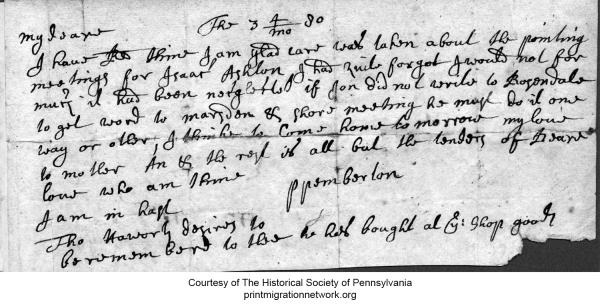 my deare The 3 4/mo 80
I have thine I am glad care was taken about the pointing
meetings for Isaac Ashton I had quite forgot I would not for
much it had been neglected if Jon did not write to Rosendale
to get word to marsden & shore meeting he must do it one
way or other, I thinke to Come home to morrow my love
to mother An & the rest is all but the tenders of Deare
love who am thine
I am in hast ppemberton
Tho Haworth desires to
be remembered to thee he hes bought al Shop goods
Courtesy of The Historical Society of Pennsylvania
printmigrationnetwork.org